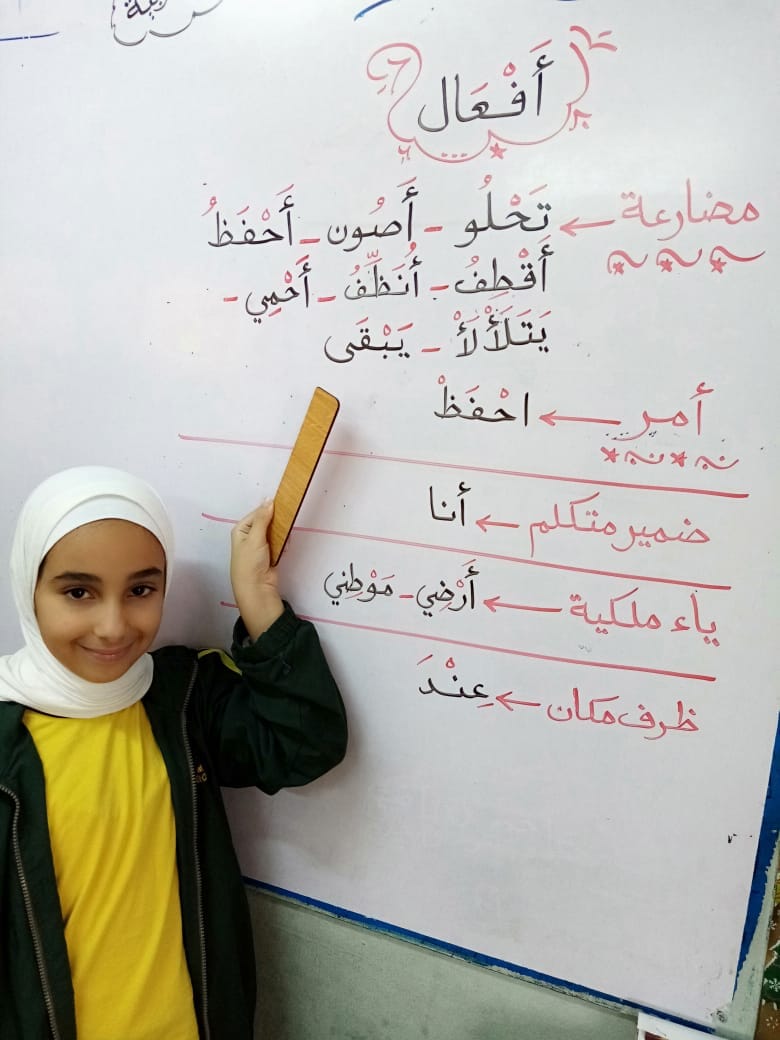 أَفْعَال
مضارعة ← تَحْلُو - أَصُون - أَحْفَظُ
أَقْطِفُ - أُنَظِّفُ - أَحْمِي -
يَتَلَأْلَأْ - يَبْقَى
أمر ← احْفَظْ
ضمير متكلم ← أنا
ياء ملكية ← أَرْضِي - مَوْطِني
ظرف مكان ← عِنْدَ